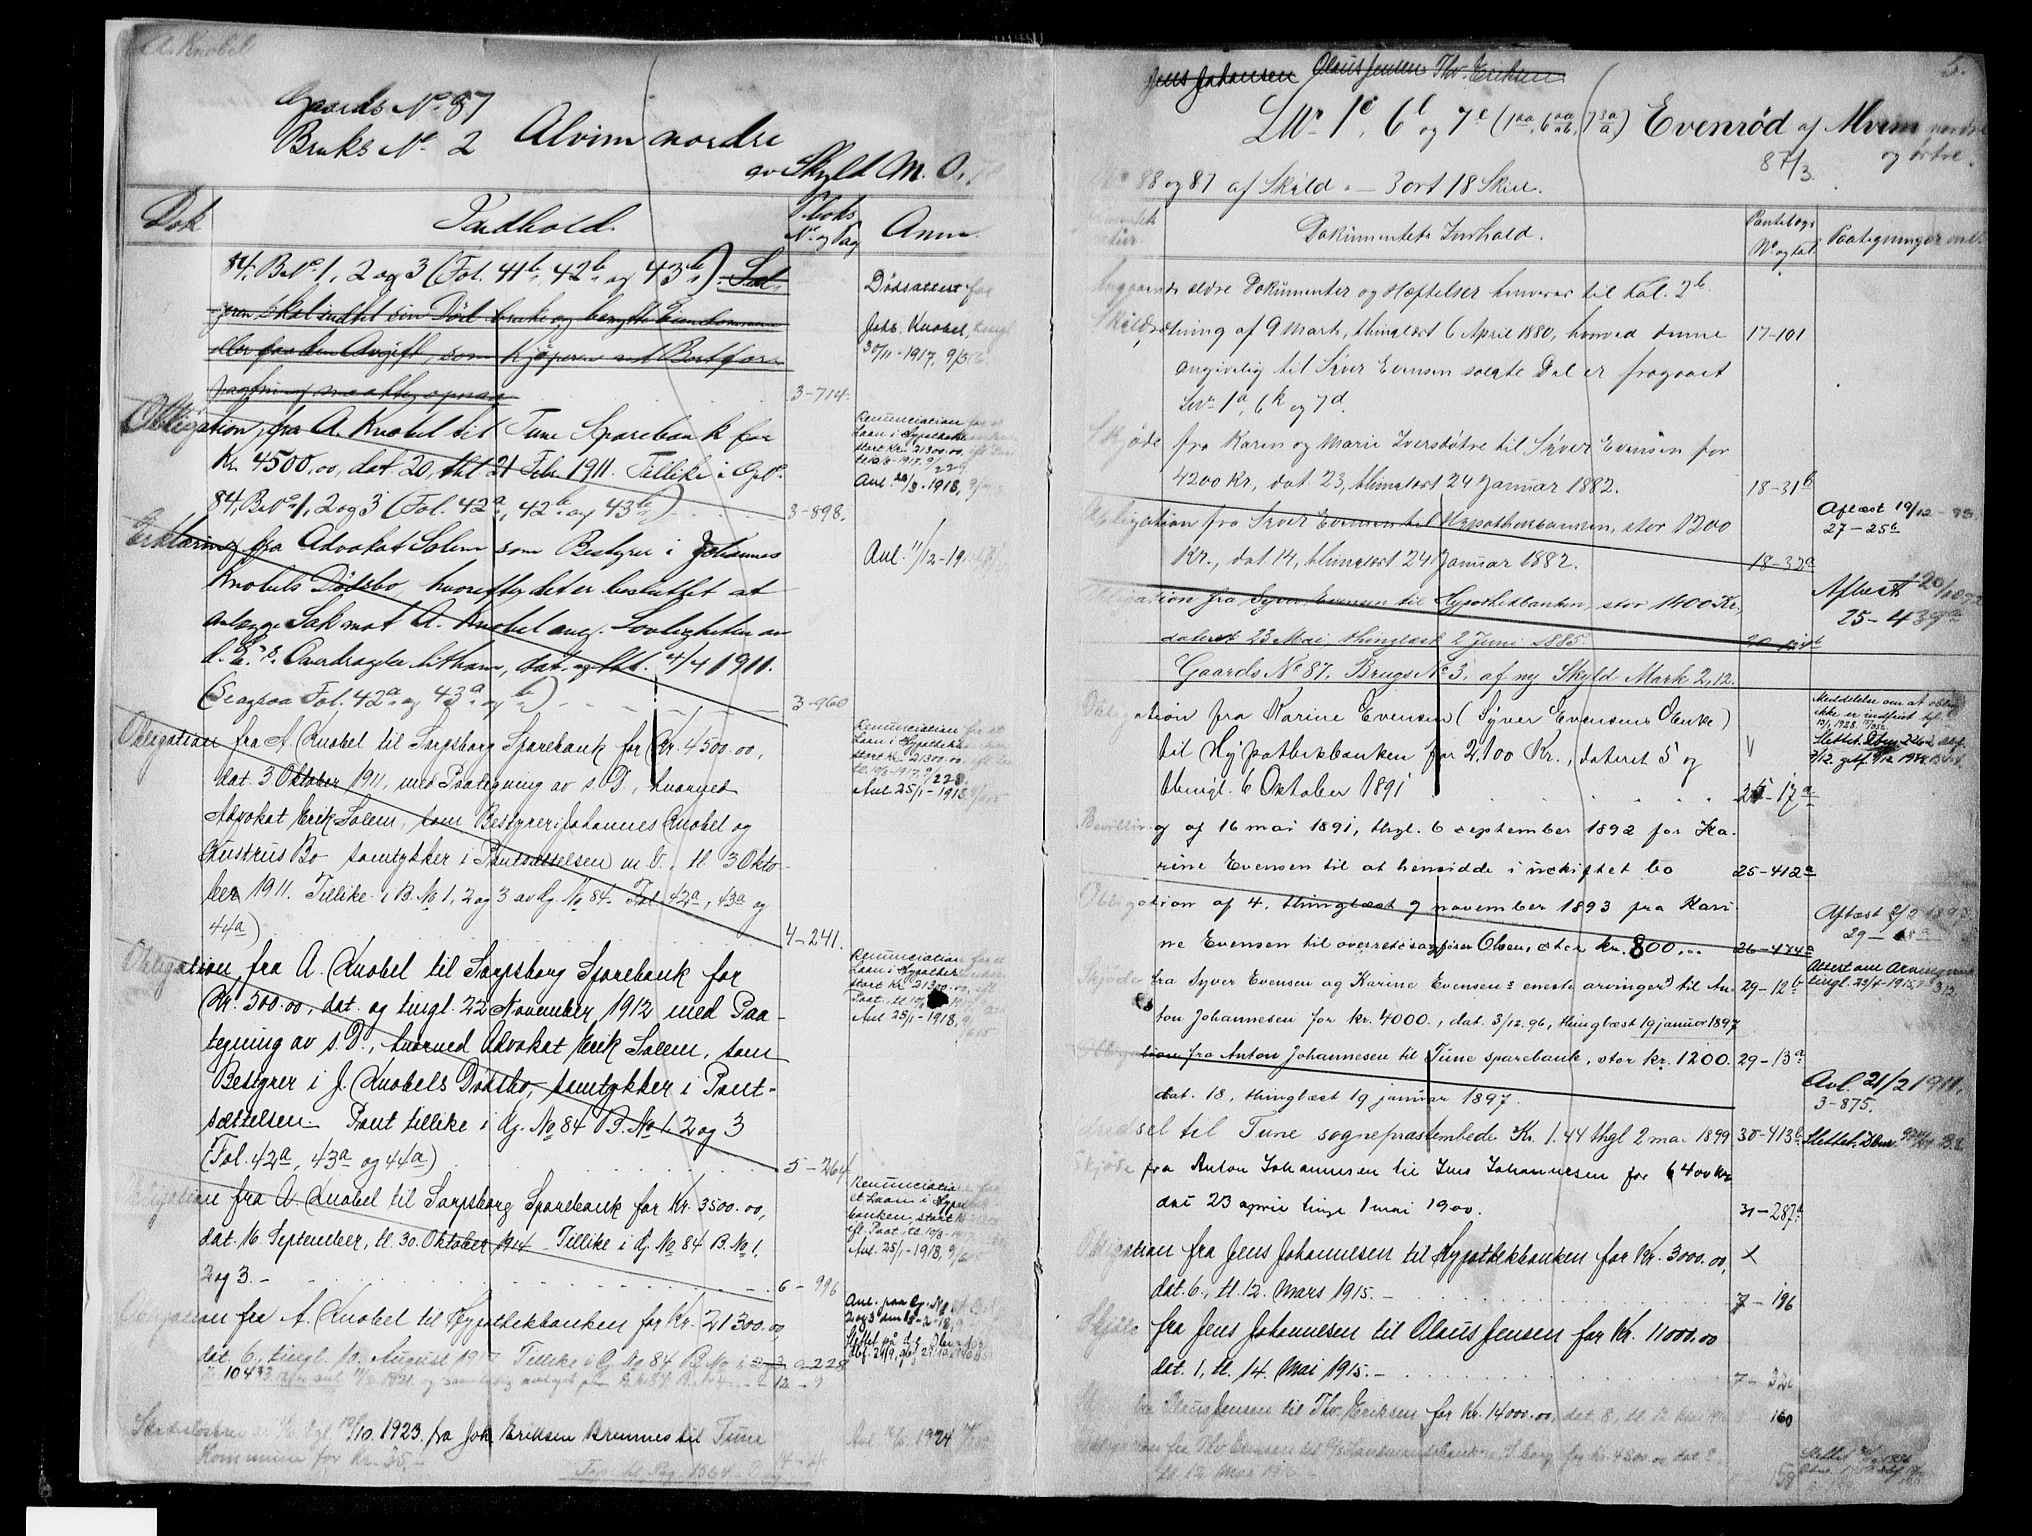 A. Knobel
Gaards No 87
Bruks No 2 Alvim nordre
av Skyld M. 0,
Dok Indhold P.boks No og Pag Anm.
84, B.No 1, 2 og 3 (Fol. 41b, 42b og 43b). Sæl-
geren skal indtil sin Død bruke og benytte Eiendommene
eller faa den Avgift, som Kjøperen ved Bortfor-
pagtning maatte opnaa 3-714.
Dødsattest for
Johs. Knobel, tingl
30/11-1917, 9/
Obligation, fra A. Knobel til Tune Sparebank for
Kr. 4500,00, dat. 20, tkl 21 Febr 1911. Tillike i G.No
84, B.No 1, 2 og 3 (Fol. 42a, 42b og 43b) 3-898.
Renunciation for et
Laan i Hypothekbanken
stort Kr. 21300.00, eft
tl 10/8-1917. 9/229
Avl. 28/3-1918,
Erklæring fra Advokat Solem som Bestyrer i Johannes
Knobels Dødsbo, hvorefter det er besluttet at
anlægge Sak mot A. Knobel ang. Lovligheten av
d. E.s Overdragelse til ham, dat. og tkl. 4/4 1911.
(Se ogsaa Fol. 42a og 43a og b) 3-960
Avl. 11/12-19
Obligation fra A. Knobel til Sarpsborg Sparebank for Kr. 4500.00,
dat. 3 Oktober 1911, med Paategning av s. D., hvorved
Advokat Erik Solem, som Bestyrer i Johannes Knobel og
Hustrus Bo samtykker i Pantsættelsen m. V. tl. 3 Okto-
ber 1911. Tillike i B. No 1, 2 og 3 av Gj. No 84. Fol 42a, 43a og
44a) 4-241.
Renunciation for et
Laan i Hypothekbanken
stort Kr. 21300.00, eft
tl. 10/8-1917. 9/228.
Avl 25/1-1918, 9/
Obligation fra A. Knobel til Sarpsborg Sparebank for
Kr. 500.00, dat. og tingl. 22 November 1912 med Paa-
tegning av s. D., hvorved Advokat Erik Solem, som
Bestyrer i J. Knobels Dødsbo, samtykker i Pant-
sættelsen. Pant tillike i Gj. No 84 B. No 1, 2 og 3
(Fol. 42a, 43a og 44a) 5-264
Renunciation for et
Laan i Hypothekbanken
stort Kr. 21300.00, eft
Paat. tl. 10/8-1917
Avl 25/1-1918, 9/615
Obligation fra A. Knobel til Sarpsborg Sparebank for Kr. 3500.00,
dat. 16. September, tl. 30. Oktober 1914. Tillike i Gj. No 84 B. No 1,
2 og 3.- 6-996
Renunciation for
et Laan i Hypothek-
banken, stort Kr.
eft. Paat. tl. 10/8-1917
Avl. 25/1-1918, 9/6
Obligation fra A. Knobel til Hypothekbanken for Kr. 21300.00
dat. 6., tingl. 10. August 1917 Tillike i G. No 84 B. No 1 2 3 9-228
Avl. paa G. No 84 B No
2 og 3 den 18-2-18, 9
Skadesløsbrev tgl. 19/10. 1923. fra Joh. Eriksen Brunnes til Tune
Kommune for Kr. 35.-
Avl 1924
Jens Johansen Olaus Jensen Thv. Eriksen
5.
LNr. 1c, 6l og 7c (1aa, 6aa ab, 73a a) Evenrød af Alvim nordre
og østre.
87/3
No 88 og 87 af Skyld - 3 ort 18 Skill.
Dokumentets Indhold. Pantebogs No og fol. Paategninger
Angaaende ældre Dokumenter og Hæftelser henvises til Fol. 2b.
Skyldsætning af 9 Marts, thinglæst 6 April 1880, hvorved denne 17-101
angivelig til Syver Evensen solgte Del er fragaaet
LNr. 1a, 6k og 7d.
Skjøde fra Karen og Marie Iversdøtre til Syver Evensen for
4200 Kr., dat. 23, thinglæst 24 Januar 1882. 18-31b
Obligation fra Syver Evensen til Hypothekbanken, stor 1200
Kr., dat 14, thinglæst 24 Januar 1882. 18-32a
Aflæst 19/12-93
27-25b
Obligation fra Syver Evensen til Hypothekbanken, stor 1400 Kr.
dateret 23 Mai, thinglæst 2 Juni 1885.
Aflæst 20/10 92
25-439a
Gaards No 87, Brugs No 3, af ny Skyld Mark 2,12.
Obligation fra Karine Evensen (Syver Evensens Enke)
til Hypothekbanken for 2,100 Kr., dateret 5 og
thingl. 6 Oktober 1891 25-17a
Meddelelse om at oblig
ikke er indfriet tgl.
Bevilling af 16 mai 1891, thgl. 6 september 1892 for Ka-
rine Evensen til at hensidde i uskiftet bo 25-412a
Obligation af 4. thinglæst 7 november 1893 fra Kari-
ne Evensen til overretssagfører Olsen, stor kr. 800,.. 26-474a
Aflæst 2/2 1897
29-
Skjøde fra Syver Evensen og Karine Evensens eneste arvinger til An- 29-12b
ton Johannesen for kr. 4000., dat. 3/12. 96, thinglæst 19 januar 1897
Attest om Arving
tingl. 23/4-1915, 7-312
Obligation fra Anton Johannesen til Tune sparebank, stor kr. 1200. 29-13a
dat. 18, thinglæst 19 januar 1897.
Avl. 21/2 1911,
3-875.
Fredsel til Tune sognepræstembede Kr. 1.44 thgl 2 mai 1899 30-413b
Slettet, Dbnr.
Skjøde fra Anton Johannesen til Jens Johannesen for 6400 Kr
dat 23 april tingl 1 mai 1900. 31-287a
Obligation fra Jens Johannesen til Hypothekbanken for Kr. 3000.00,
dat. 6., tl. 12. Mars 1915.- 7-196
Skjøte fra Jens Johannesen til Olaus Jensen for Kr. 11000.00
dat. 1., tl. 14. Mai 1915.- 7-326
fra Olaus Jensen til Thv. Eriksen for Kr. 14000.00, dat. 8, tl. 12 Mai 160
Obligation fra Thv. Eriksen til for Kr. 4800.00 dat 8,
tl. 12 Mai